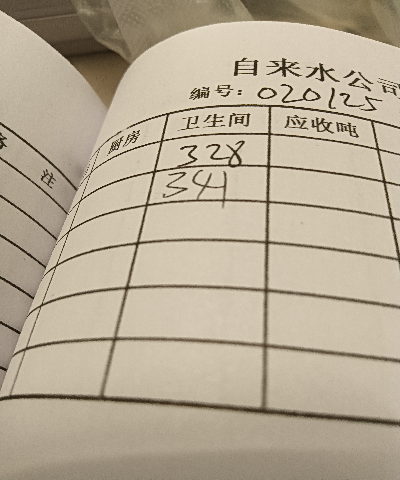 自来水公司
编号: 020125
注
厨房 卫生间 应收吨
328
341